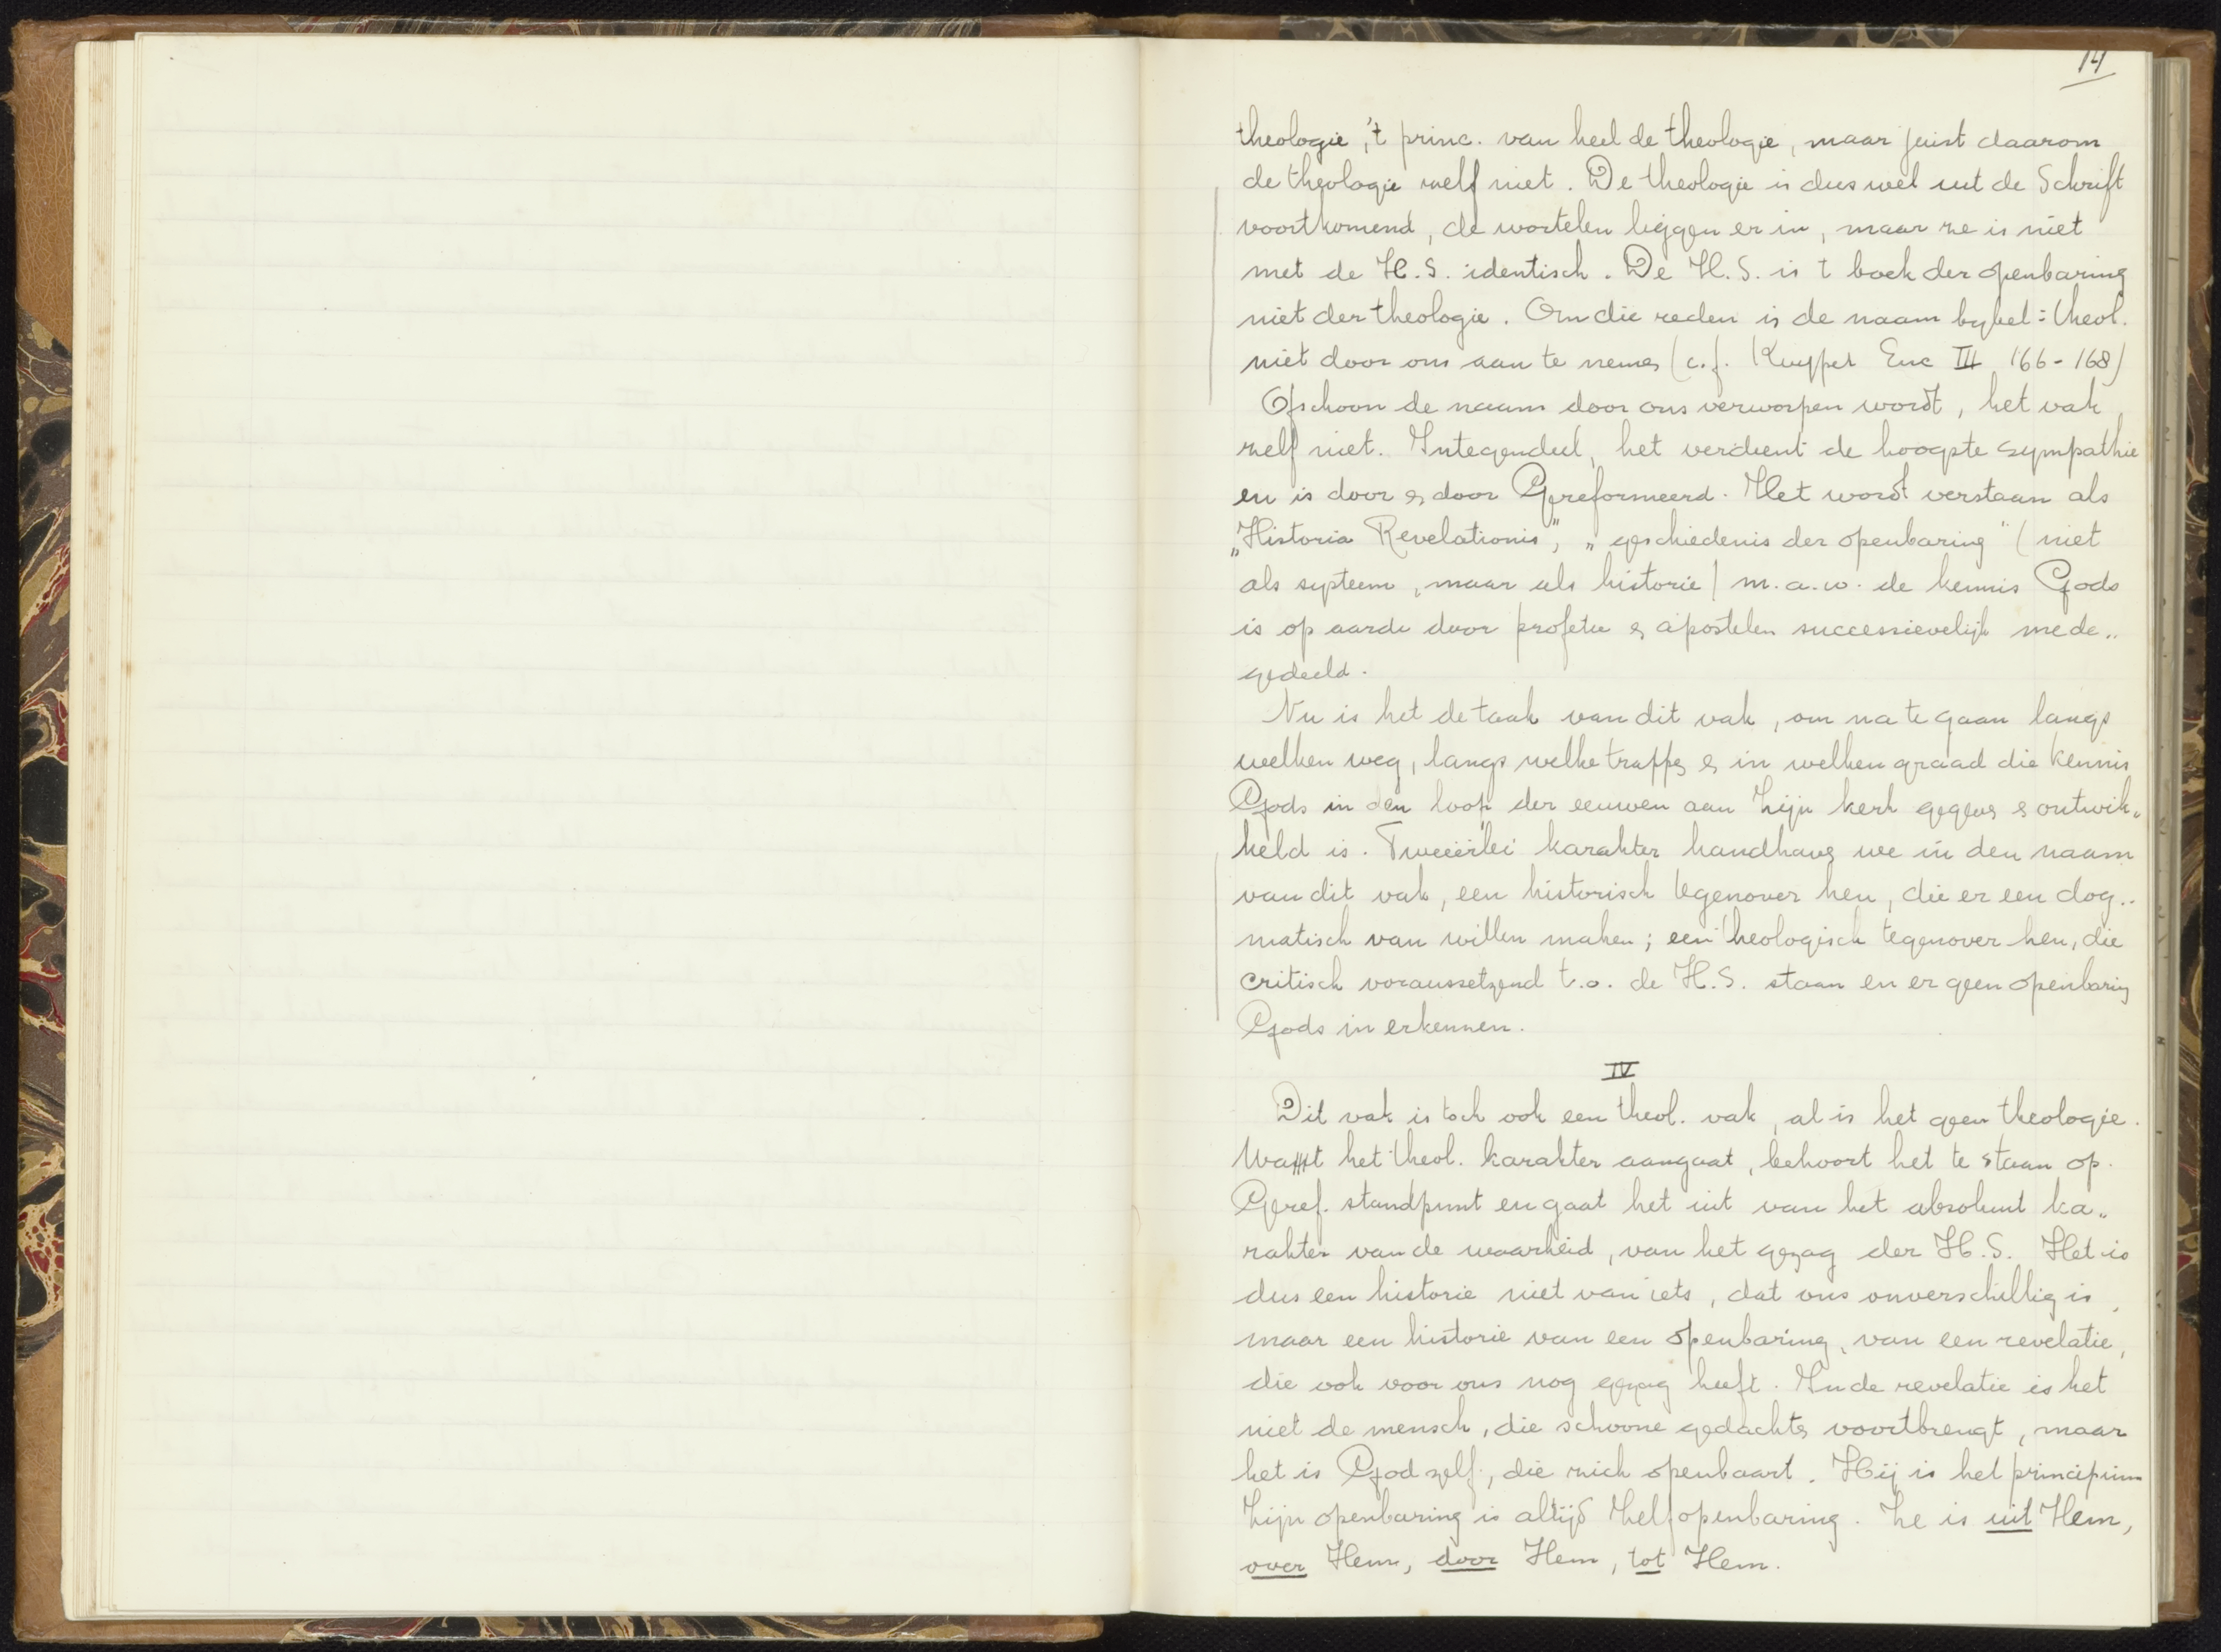 14
theologie, 't princ. van heel de theologie, maar juist daarom
de theologie zelf niet. De theologie is dus wel uit de Schrift
voortkomend, de wortelen liggen er in, maar ze is niet
met de H.S. identisch. De H.S. is t boek der openbaring
niet der theologie. Om die reden is de naam bybel = theol.
niet door ons aan te nemen (c.f. Kuyper Enc III 166-168)
Ofschoon de naam door ons verworpen wordt, het vak
zelf niet. Integendeel, het verdient de hoogste sympathie
en is door & door Gereformeerd. Het wordt verstaan als
„Historia Revelationis", „geschiedenis der openbaring" (niet
als systeem, maar als historie) m.a.w. de kennis Gods
is op aarde door profeten & apostelen successievelijk mede„
gedeeld.
Nu is het de taak van dit vak, om na te gaan langs
welken weg, langs welke trappen & in welken graad die kennis
Gods in den loop der eeuwen aan Zijn kerk gegeven & ontwik„
keld is. Tweeërlei karakter handhaven we in den naam
van dit vak, een historisch tegenover hen, die er een dog„
matisch van willen maken; een theologisch tegenover hen, die
critisch voraussetzend t.o. de H.S. staan en er geen openbaring
Gods in erkennen.
IV
Dit vak is toch ook een theol. vak, al is het geen theologie.
Wat het theol. karakter aangaat, behoort het te staan op
Geref. standpunt en gaat het uit van het absoluut ka„
rakter van de waarheid, van het gezag der H.S. Het is
dus een historie niet van iets, dat ons onverschillig is,
maar een historie van een openbaring, van een revelatie,
die ook voor ons nog gezag heeft. In de revelatie is het
niet de mensch, die schoone gedachten voortbrengt, maar
het is God zelf, die zich openbaart. Hij is het principium
Zijn openbaring is altijd Zelfopenbaring. Ze is uit Hem,
over Hem, door Hem, tot Hem.